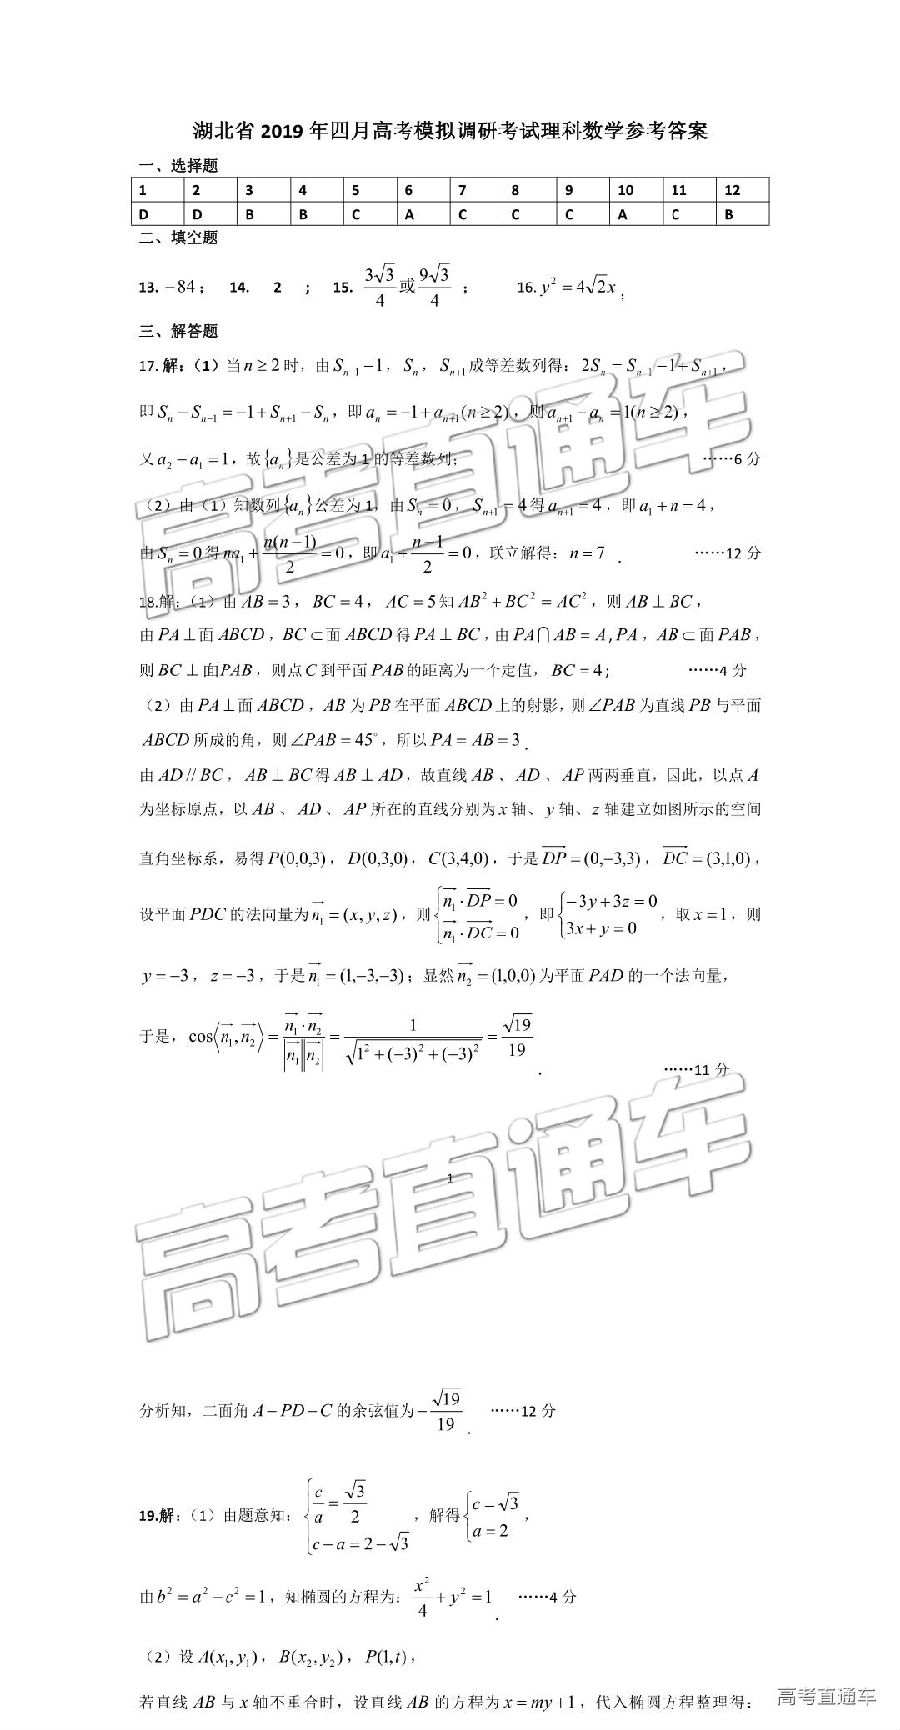 湖北省 2019 年四月高考模拟调研考试理科数学参考答案
一、选择题
1 2 3 4 5 6 7 8 9 10 11 12
D D B B C A C C C A C B
二、填空题
13. −84； 14. 2 ； 15. 3√3/4 或 9√3/4 ； 16. y² = 4√2x ；
三、解答题
17.解：（1）当 n ≥ 2 时，由 Sₙ₋₁−1，Sₙ，Sₙ₊₁ 成等差数列得：2Sₙ = Sₙ₋₁−1+Sₙ₊₁，
即 Sₙ − Sₙ₋₁ = −1 + Sₙ₊₁ − Sₙ，即 aₙ = −1 + aₙ₊₁(n ≥ 2)，则 aₙ₊₁ − aₙ = 1(n ≥ 2)，
又 a₂ − a₁ = 1，故{aₙ}是公差为 1 的等差数列； ……6 分
（2）由（1）知数列{aₙ}公差为 1，由 Sₙ = 0，Sₙ₊₁ = 4 得 aₙ₊₁ = 4，即 a₁ + n = 4，
由 Sₙ = 0 得 na₁ + n(n−1)/2 = 0，即 a₁ + (n−1)/2 = 0，联立解得：n = 7 . ……12 分
18.解：（1）由 AB = 3，BC = 4，AC = 5 知 AB² + BC² = AC²，则 AB ⊥ BC，
由 PA ⊥ 面 ABCD，BC ⊂ 面 ABCD 得 PA ⊥ BC，由 PA ∩ AB = A, PA，AB ⊂ 面 PAB，
则 BC ⊥ 面PAB，则点 C 到平面 PAB 的距离为一个定值，BC = 4； ……4 分
（2）由 PA ⊥ 面 ABCD，AB 为 PB 在平面 ABCD 上的射影，则 ∠PAB 为直线 PB 与平面
ABCD 所成的角，则 ∠PAB = 45°，所以 PA = AB = 3 .
由 AD // BC，AB ⊥ BC 得 AB ⊥ AD，故直线 AB 、AD 、AP 两两垂直，因此，以点 A
为坐标原点，以 AB 、AD 、AP 所在的直线分别为 x 轴、y 轴、z 轴建立如图所示的空间
直角坐标系，易得 P(0,0,3)，D(0,3,0)，C(3,4,0)，于是 DP→ = (0,−3,3)，DC→ = (3,1,0)，
设平面 PDC 的法向量为 n₁→ = (x, y, z)，则 { n₁→ · DP→ = 0 ; n₁→ · DC→ = 0 ，即 { −3y + 3z = 0 ; 3x + y = 0 ，取 x = 1，则
y = −3，z = −3，于是 n₁→ = (1,−3,−3)；显然 n₂→ = (1,0,0) 为平面 PAD 的一个法向量，
于是，cos⟨n₁→, n₂→⟩ = n₁→ · n₂→ / |n₁→||n₂→| = 1/√(1² + (−3)² + (−3)²) = √19/19 . ……11 分
1
分析知，二面角 A − PD − C 的余弦值为 −√19/19 . ……12 分
19.解：（1）由题意知：{ c/a = √3/2 ; c − a = 2 − √3 ，解得 { c = √3 ; a = 2 ，
由 b² = a² − c² = 1，知椭圆的方程为：x²/4 + y² = 1 . ……4 分
（2）设 A(x₁, y₁)，B(x₂, y₂)，P(1, t)，
若直线 AB 与 x 轴不重合时，设直线 AB 的方程为 x = my + 1，代入椭圆方程整理得：
高考直通车
高考直通车
高考直通车